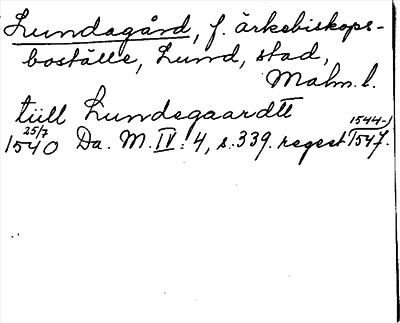 Lundagård, f. ärkebiskops-
boställe, Lund, stad,
Malm. l.
tüll Lundegaardtt
25/7 1540 Da. M. IV: 4, s. 339. regest 1544-1547.